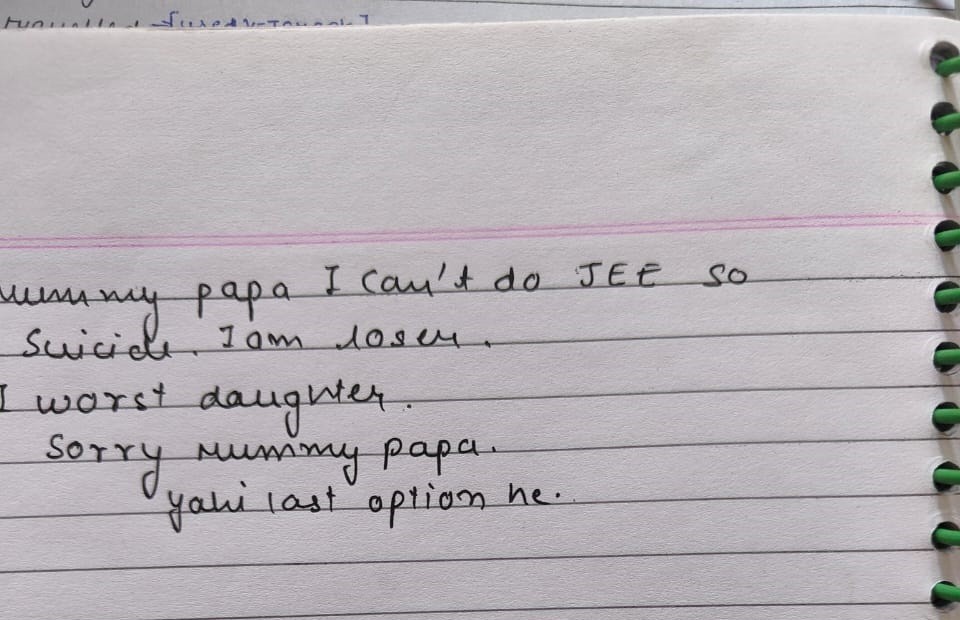 Mummy papa I can't do JEE so
suicide. I am loser.
I worst daughter.
Sorry Mummy papa.
yahi last option he.